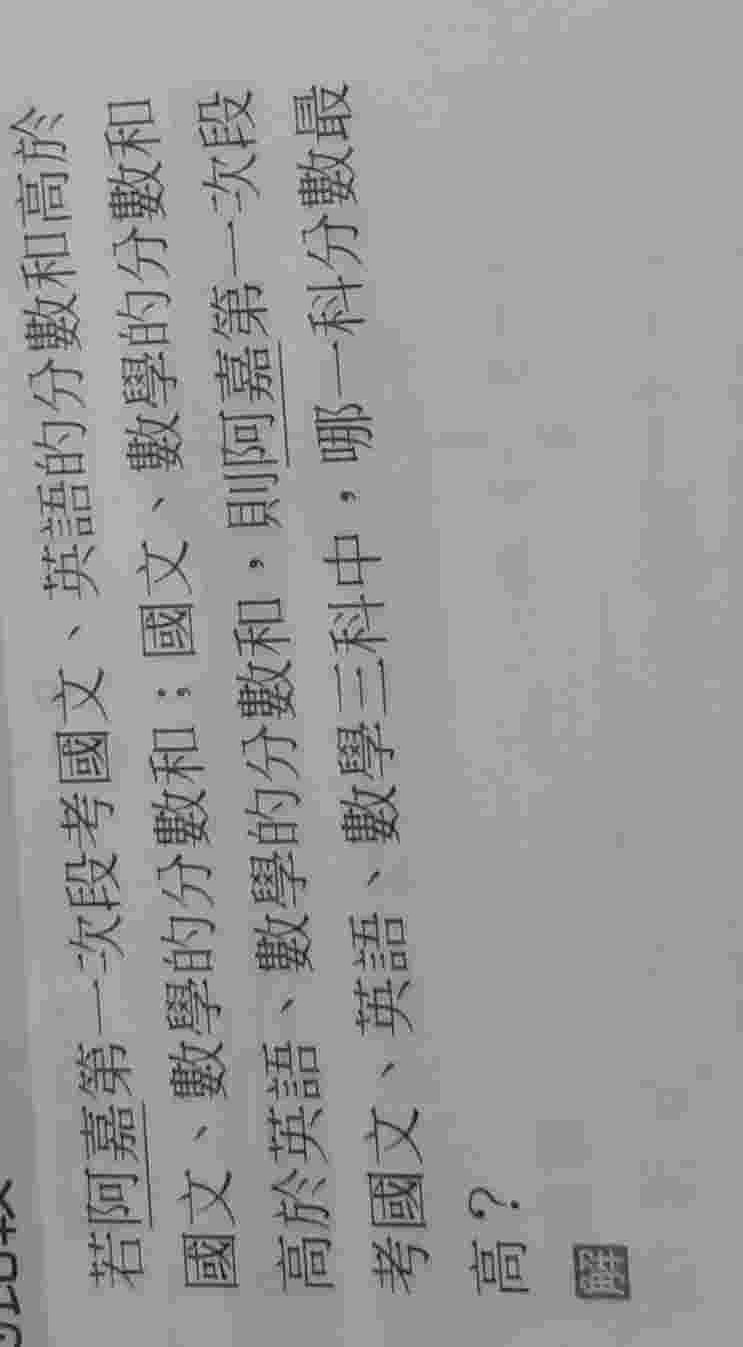 若阿嘉第一次段考國文、英語的分數和高於
國文、數學的分數和；國文、數學的分數和
高於英語、數學的分數和，則阿嘉第一次段
考國文、英語、數學三科中，哪一科分數最
高？
解